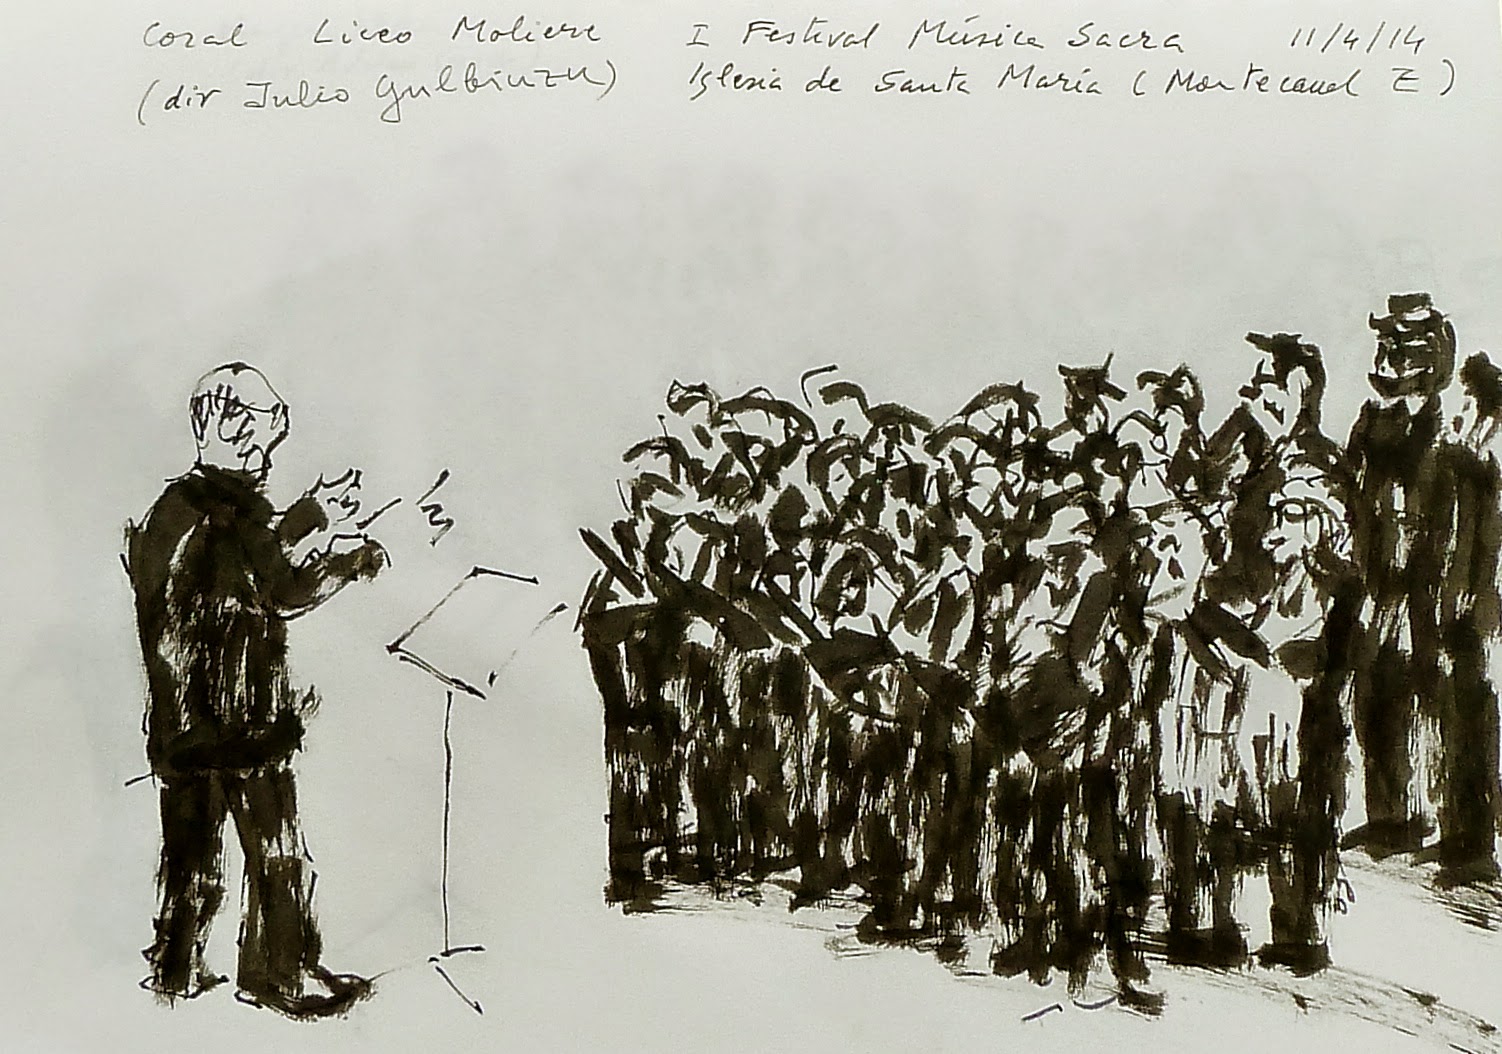 Coral Liceo Moliere I Festival Música Sacra 11/4/14
(dir Julio Gulbinzu) Iglesia de Santa María (Montecanal Z)